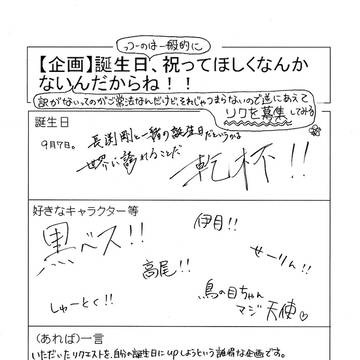 っつーのは一般的に
【企画】誕生日、祝ってほしくなんか
ないんだからね！！
訳がないってのがご常法なんだけど、それじゃつまらないので逆にあえて
リクを募集してみる
誕生日
9月7日。
長渕剛と一緒の誕生日だというから
世界に誇れることだ
乾杯!!
好きなキャラクター等
黒バス!!
伊月!!
高尾!!
せーりん!!
しゅーとく!!
鳥の目ちゃん
マジ天使♡
(あれば)一言
いただいたリクエストを、自分の誕生日にupしようという謎な企画です。